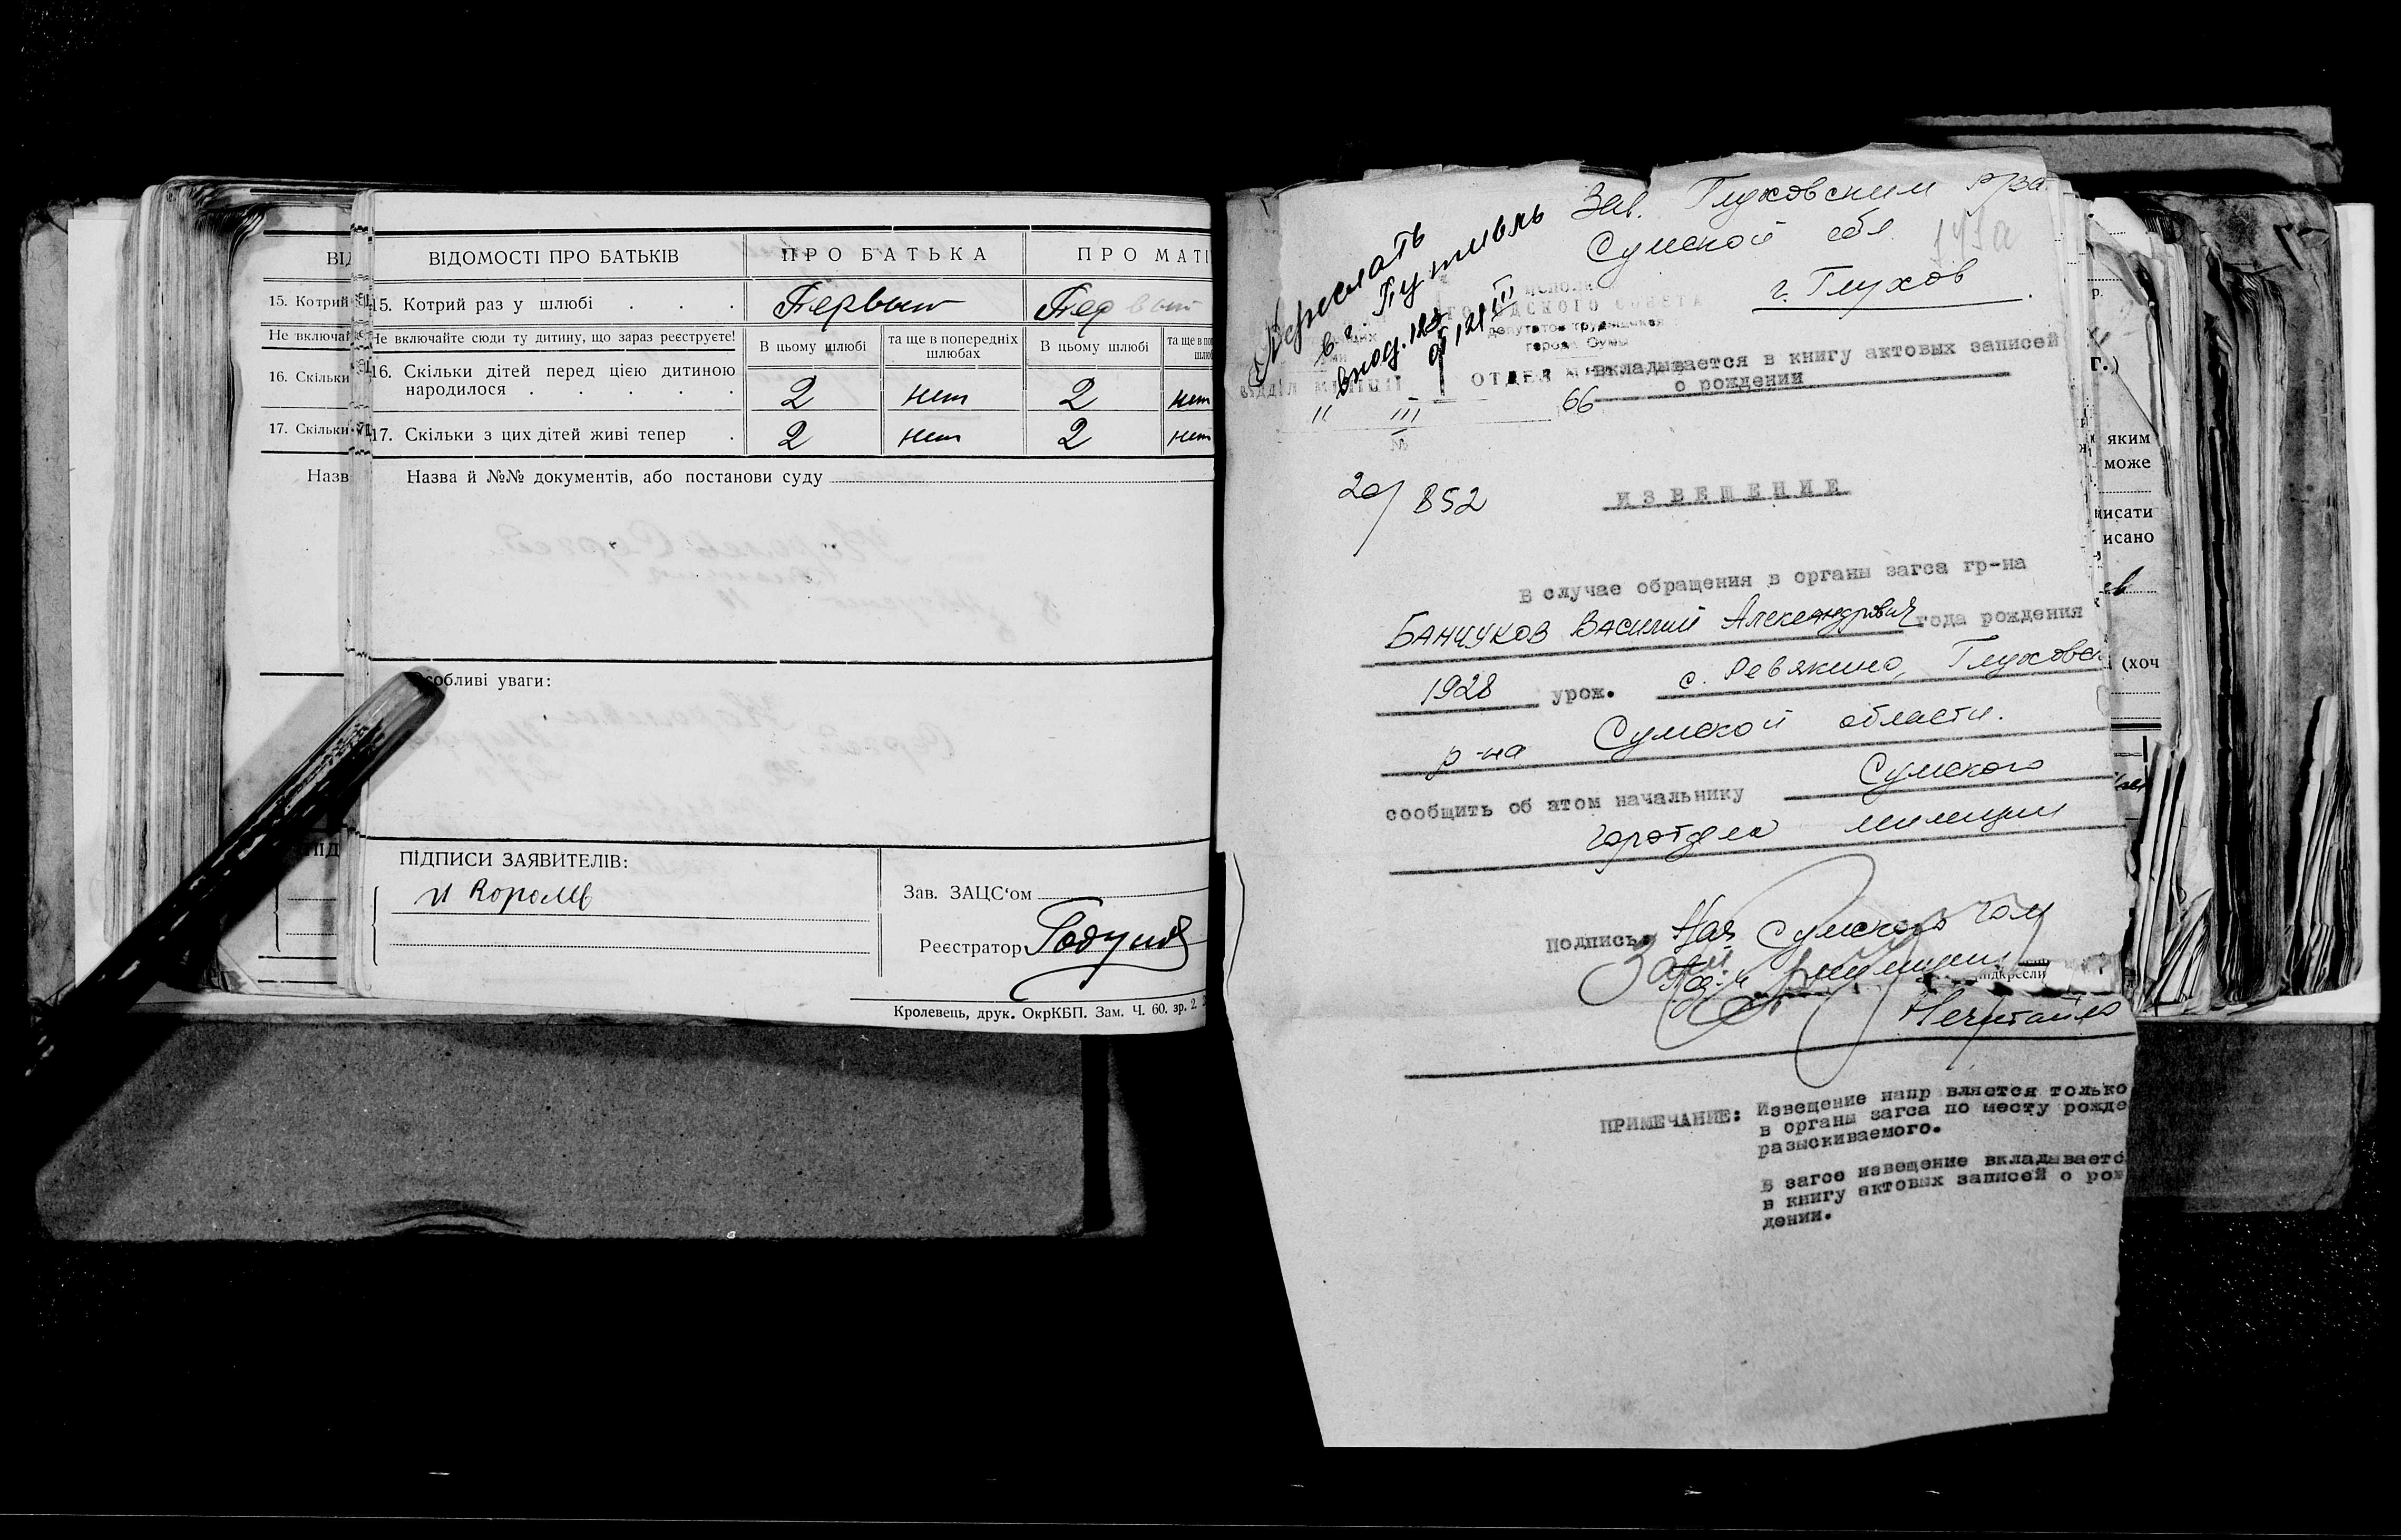 ВІДОМОСТІ ПРО БАТЬКІВ
ПРО БАТЬКА
ПРО МАТІ
15. Котрий
15. Котрий раз у шлюбі . . .
Первый
Первый
Не включай
Не включайте сюди ту дитину, що зараз реєструєте!
В цьому шлюбі
та ще в попередніх шлюбах
В цьому шлюбі
16. Скільки
16. Скільки дітей перед цією дитиною
народилося . . . . .
2
нет
2
нет
17. Скільки
17. Скільки з цих дітей живі тепер .
2
нет
2
нет
Назв
Назва й №№ документів, або постанови суду
Особливі уваги:
ПІДПИСИ ЗАЯВИТЕЛІВ:
Зав. ЗАЦС‘ом
Реєстратор
Кролевець, друк. ОкрКБП. Зам. Ч. 60. зр. 2.
Переслать
в г. Путивль
Зав. Глуховским р/за
Сумской обл
г. Глухов
депутатов трудящихся
города Сумы
ОТДЕЛ
вкладывается в книгу актовых записей
о рождении
11 III 66
№
20/852
ИЗВЕЩЕНИЕ
В случае обращения в органы загса гр-на
БАНЧУКОВ Василий Александрович года рождения
1928 урож. с. Ревякино, Глуховск
р-на Сумской области.
сообщить об этом начальнику Сумского
горотдела милиции
Подпись: Нач Сумского
милиции
ПРИМЕЧАНИЕ: Извещение напр вляется только
в органы загса по месту рожде
разыскиваемого.
В загсе извещение вкладываетс
в книгу актовых записей о рож
дении.
яким
може
исати
исано
(хоч